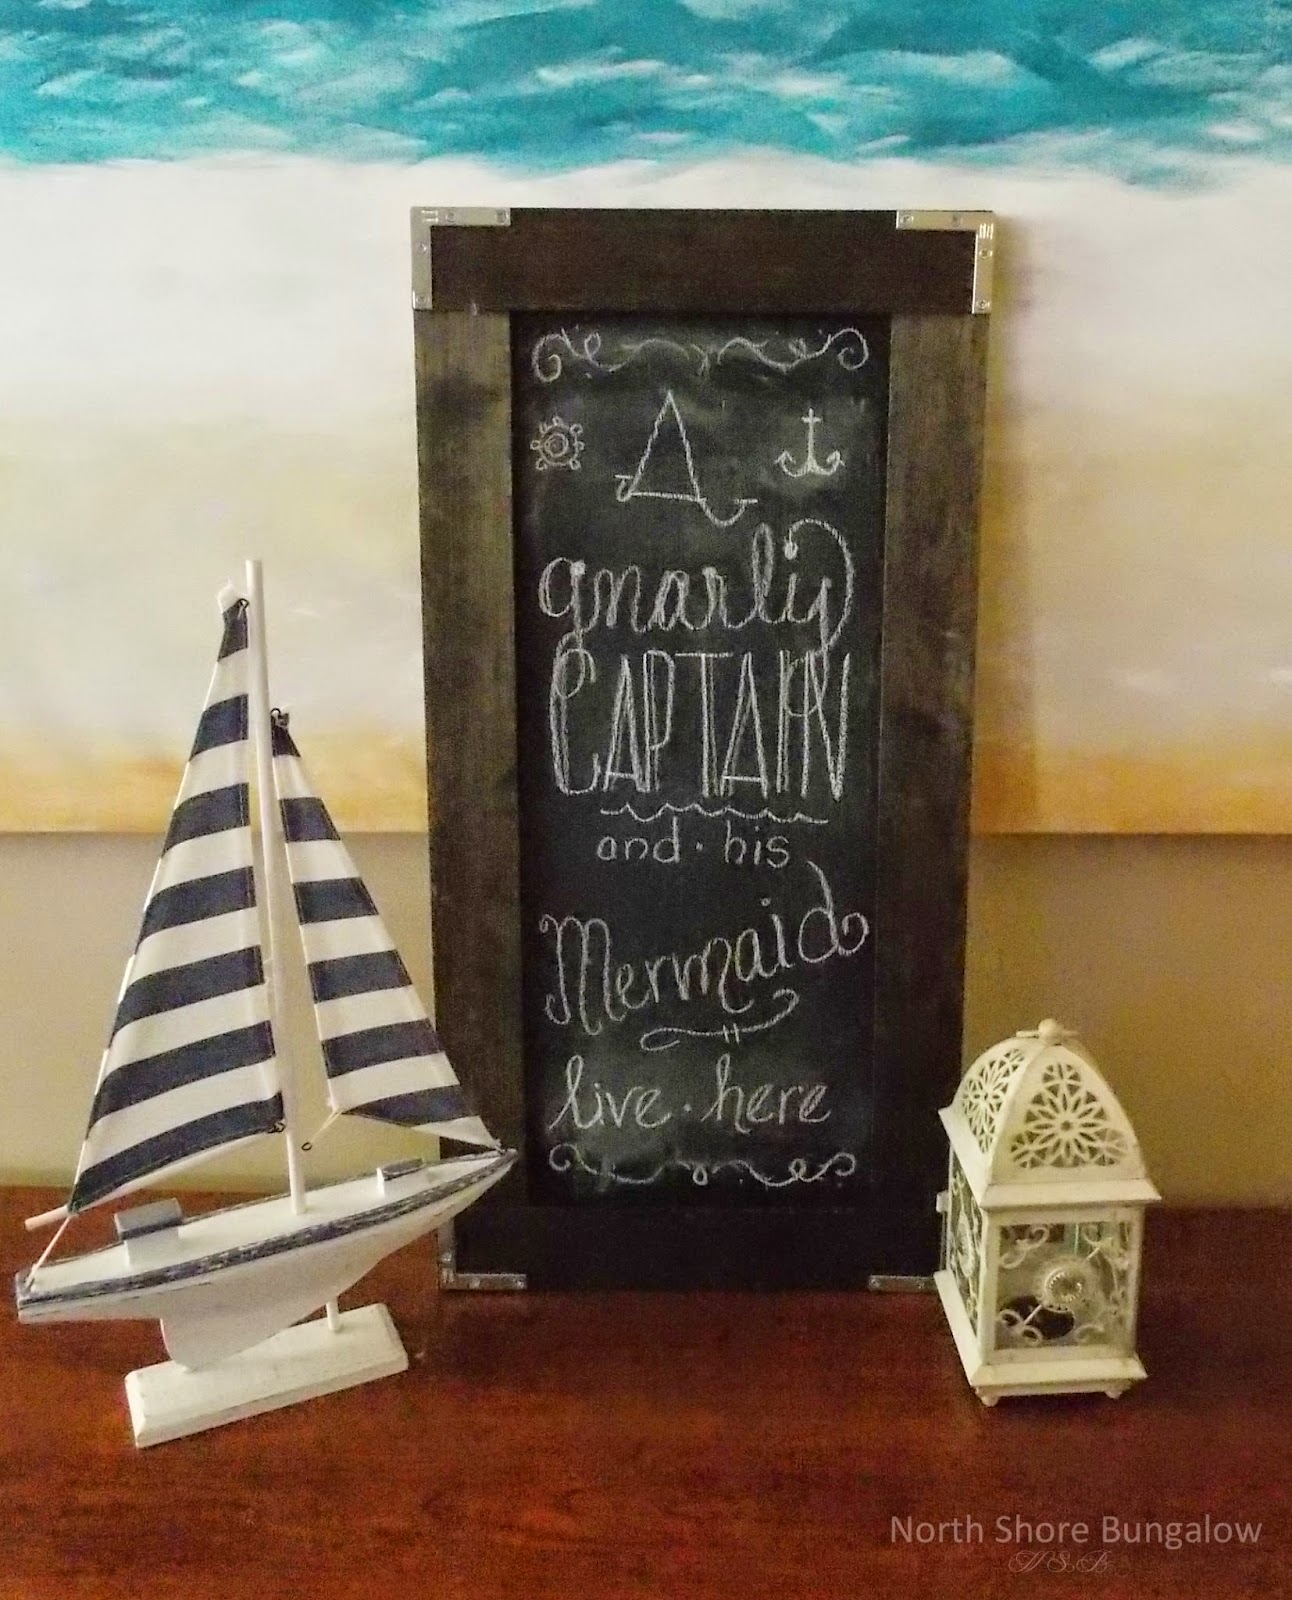 A
gnarly
CAPTAIN
and · his
Mermaid
live · here
North Shore Bungalow
NSB